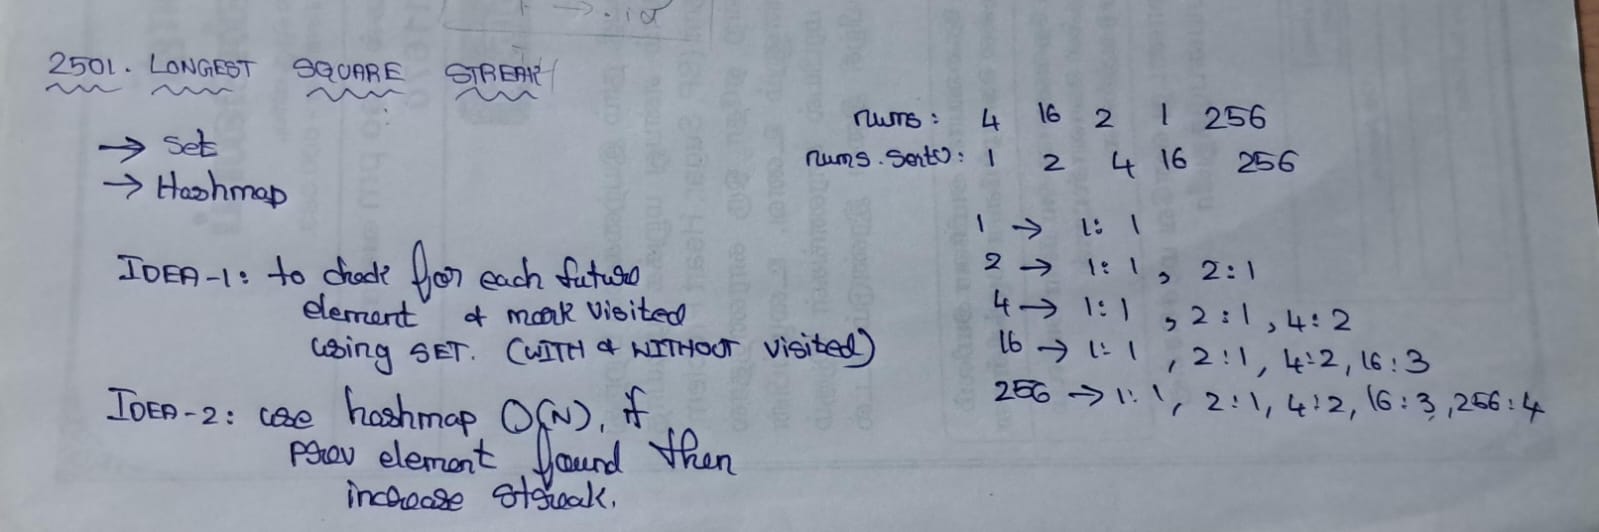 2501. LONGEST SQUARE STREAK
→ Set
→ Hashmap
IDEA-1: to check for each future
element & mark visited
using SET. (WITH & WITHOUT visited)
IDEA-2: use hashmap O(N), if
prev element found then
increase streak.
nums: 4 16 2 1 256
nums.sort(): 1 2 4 16 256
1 → 1: 1
2 → 1: 1, 2:1
4 → 1:1, 2:1, 4:2
16 → 1:1, 2:1, 4:2, 16:3
256 → 1:1, 2:1, 4:2, 16:3, 256:4